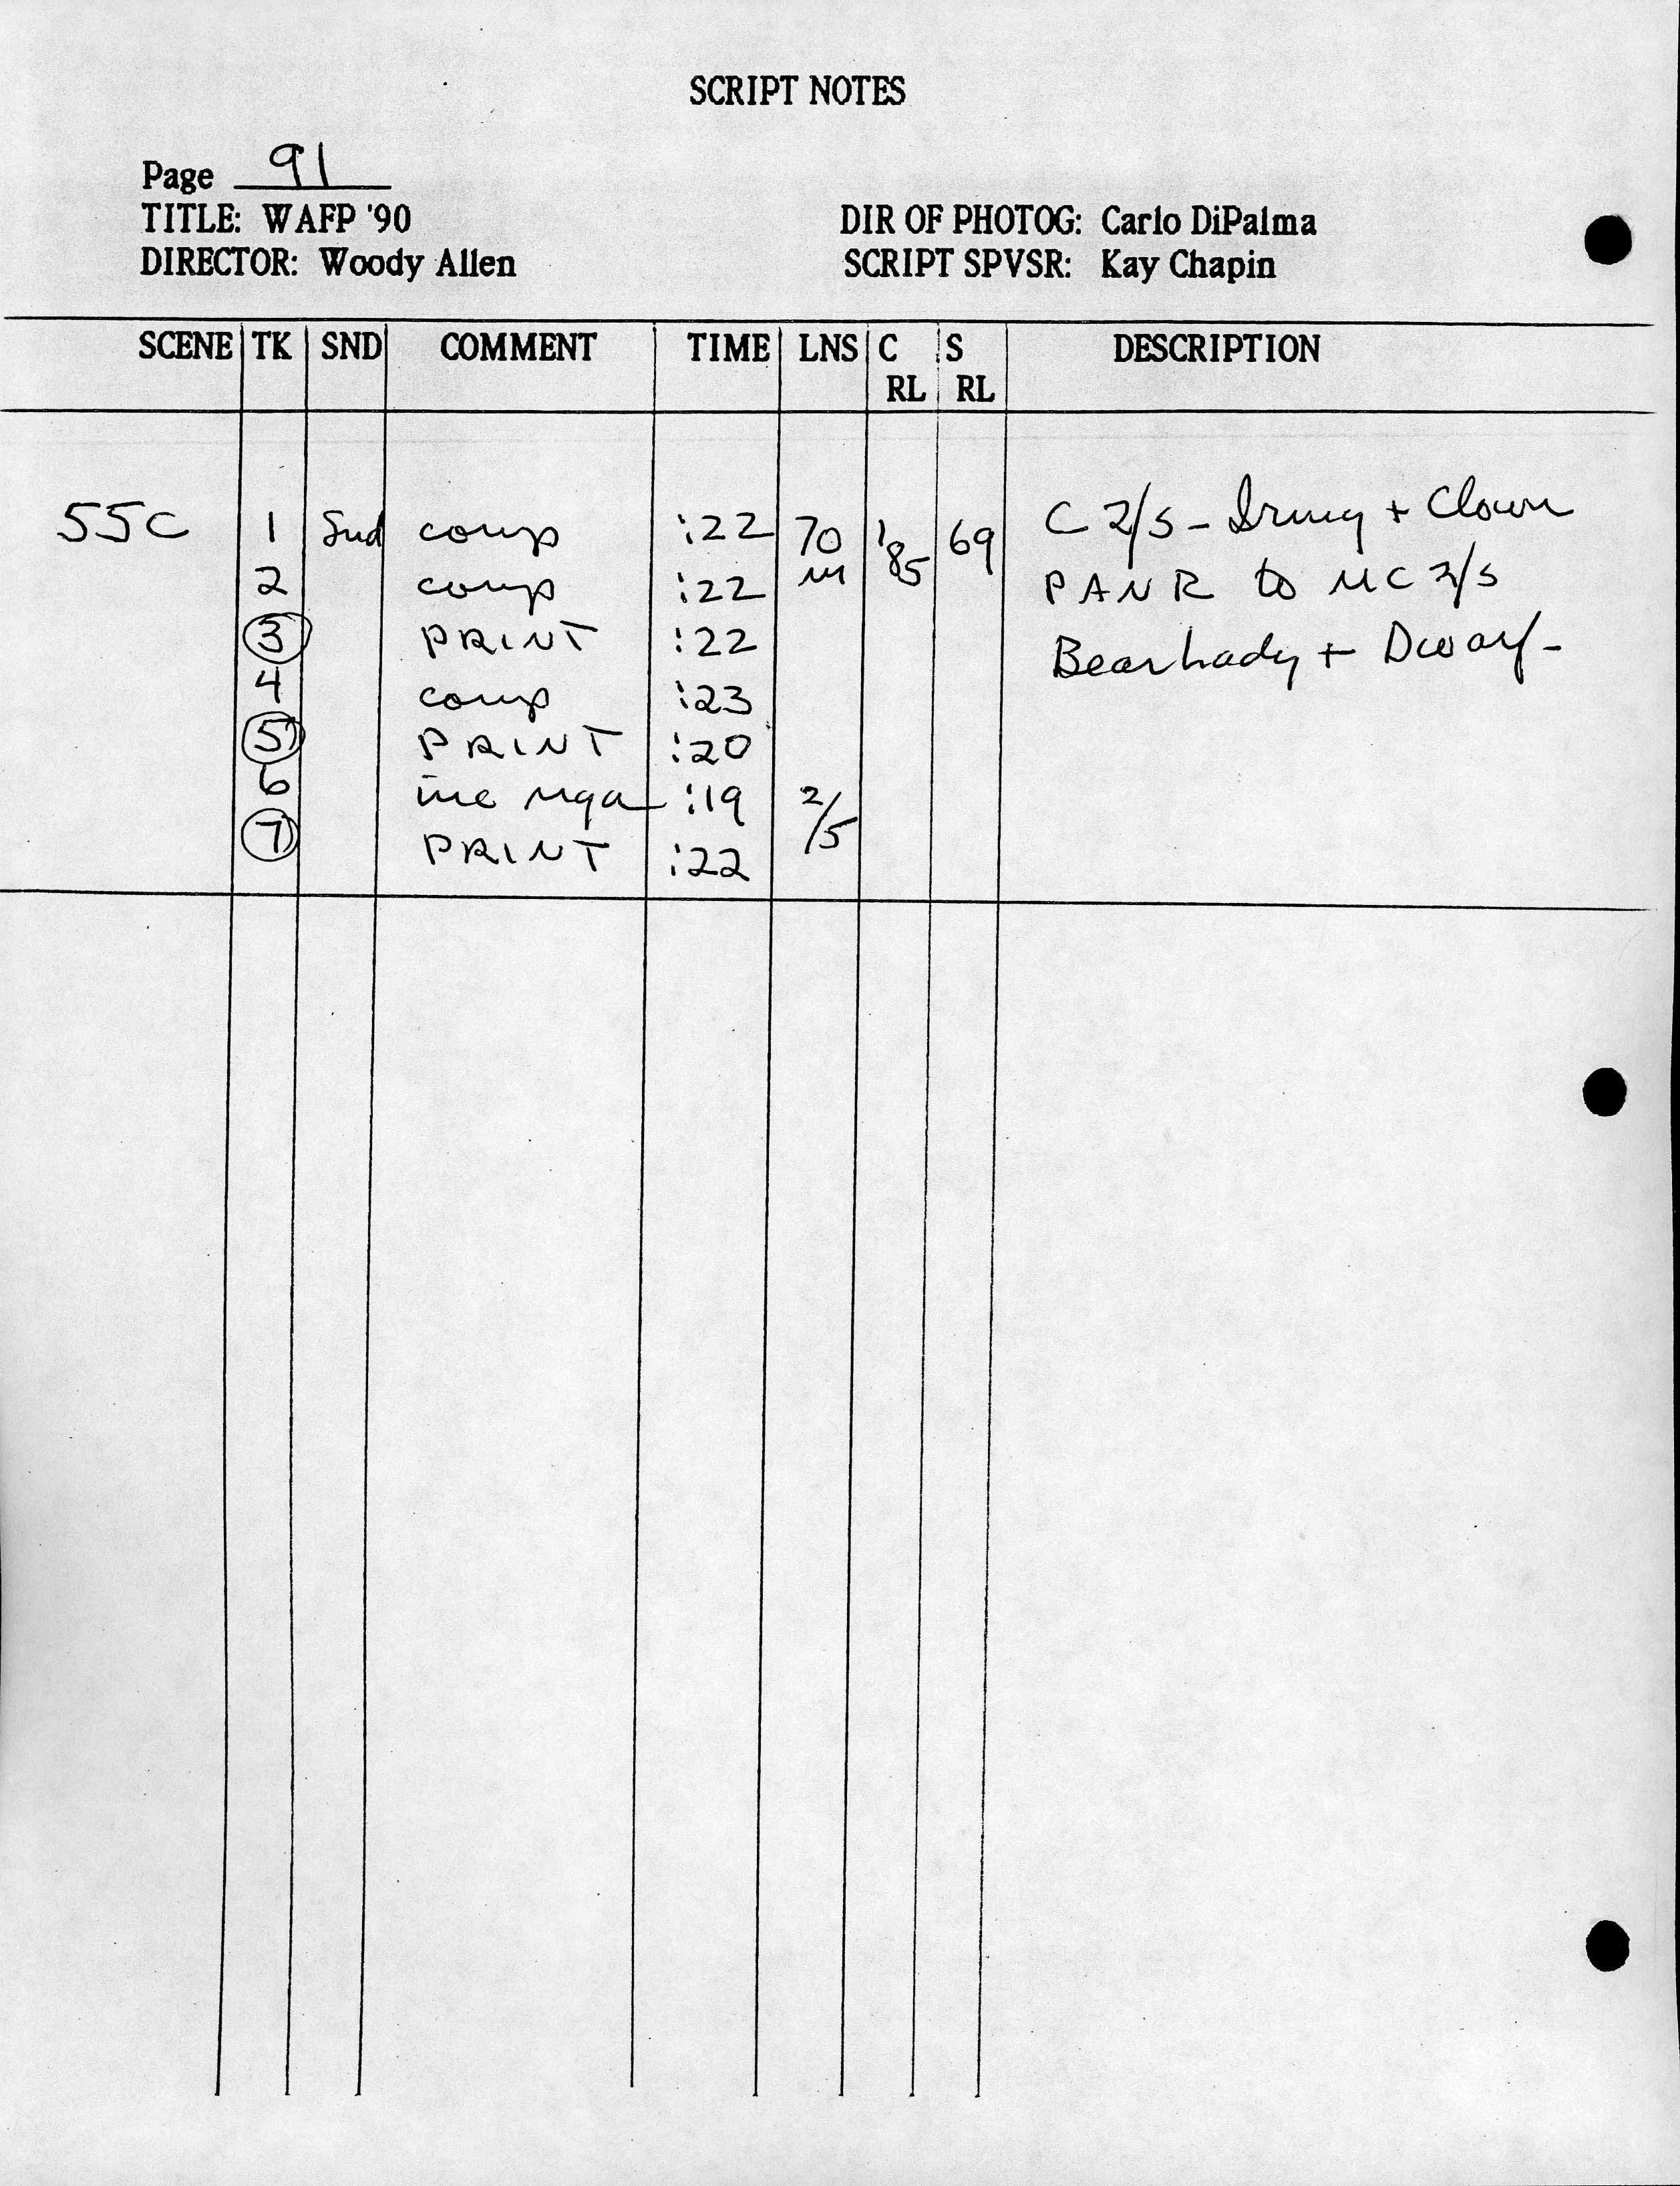 SCRIPT NOTES
Page 91
TITLE: WAFP '90
DIRECTOR: Woody Allen
DIR OF PHOTOG: Carlo DiPalma
SCRIPT SPVSR: Kay Chapin
SCENE TK SND COMMENT TIME LNS C RL S RL DESCRIPTION
55C 1 Snd comp :22 70 m 185 69 C 2/S - Irmy + Clown
2 comp :22 PAN R to MC 2/S
3 PRINT :22 Bearhady + Dwarf -
4 comp :23
5 PRINT :20
6 inc nga :19 2/5
7 PRINT :22